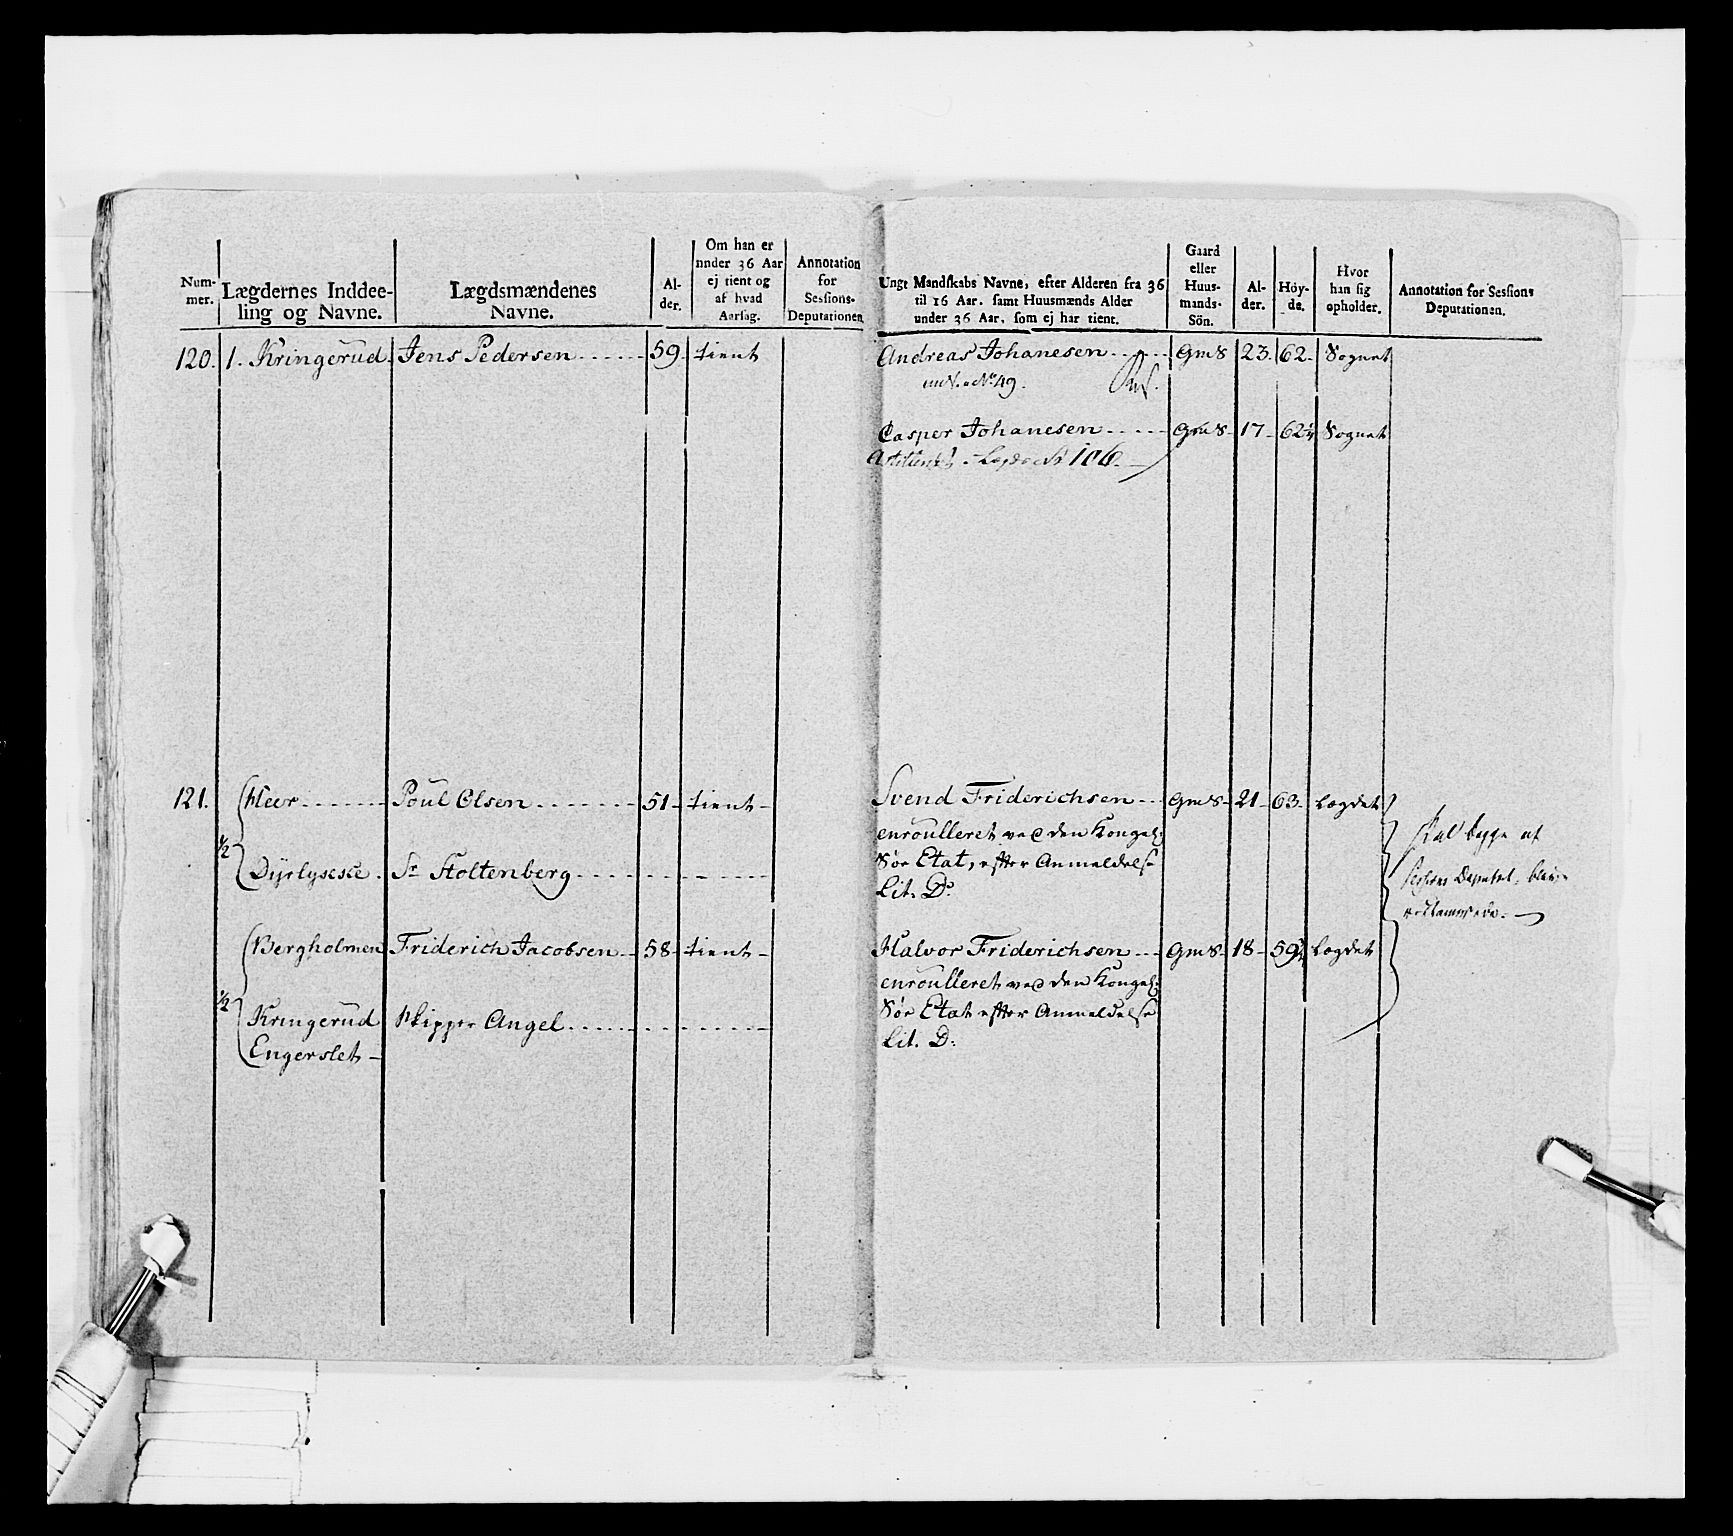 Num-
mer.
Lægdernes Inddee-
ling og Navne.
Lægdsmændenes
Navne.
Al-
der.
Om han er
nnder 36 Aar
ej tient og
af hvad
Aarsag.
Annotation
for
Sessions-
Deputationen
Ungt Mandskabs Navne, efter Alderen fra 36
til 16 Aar, samt Huusmænds Alder
under 36 Aar, som ej har tient.
Gaard
eller
Huus-
mands-
Sön.
Al-
der.
Höy-
de.
Hvor
han sig
opholder.
Annotation for Sessions
Deputationen.
120. 1. Kringerud. Jens Pedersen 59. tient Andreas Johanesen GmS 23. 62. Sognet
No 49.
Casper Johanesen GmS 17 62¼ Sognet
No 106.
121. Heer Poul Olsen 51 tient Svend Friderichsen GmS 21 63 Lægdet
enroulleret ved den Kongel:
½
Søe Etat, efter Anmeldelse
Dyrlysesie. Sr Stoltenberg
Lit. D:
skal bygge
Bergholmen Friderich Jacobsen 58 tient Halvor Friderichsen GmS 18 59½ Lægdet
enroulleret ved den Kongel:
½
Søe Etat efter Anmeldelse
Kringerud Skipper Angel
Lit. D:
Engerslet